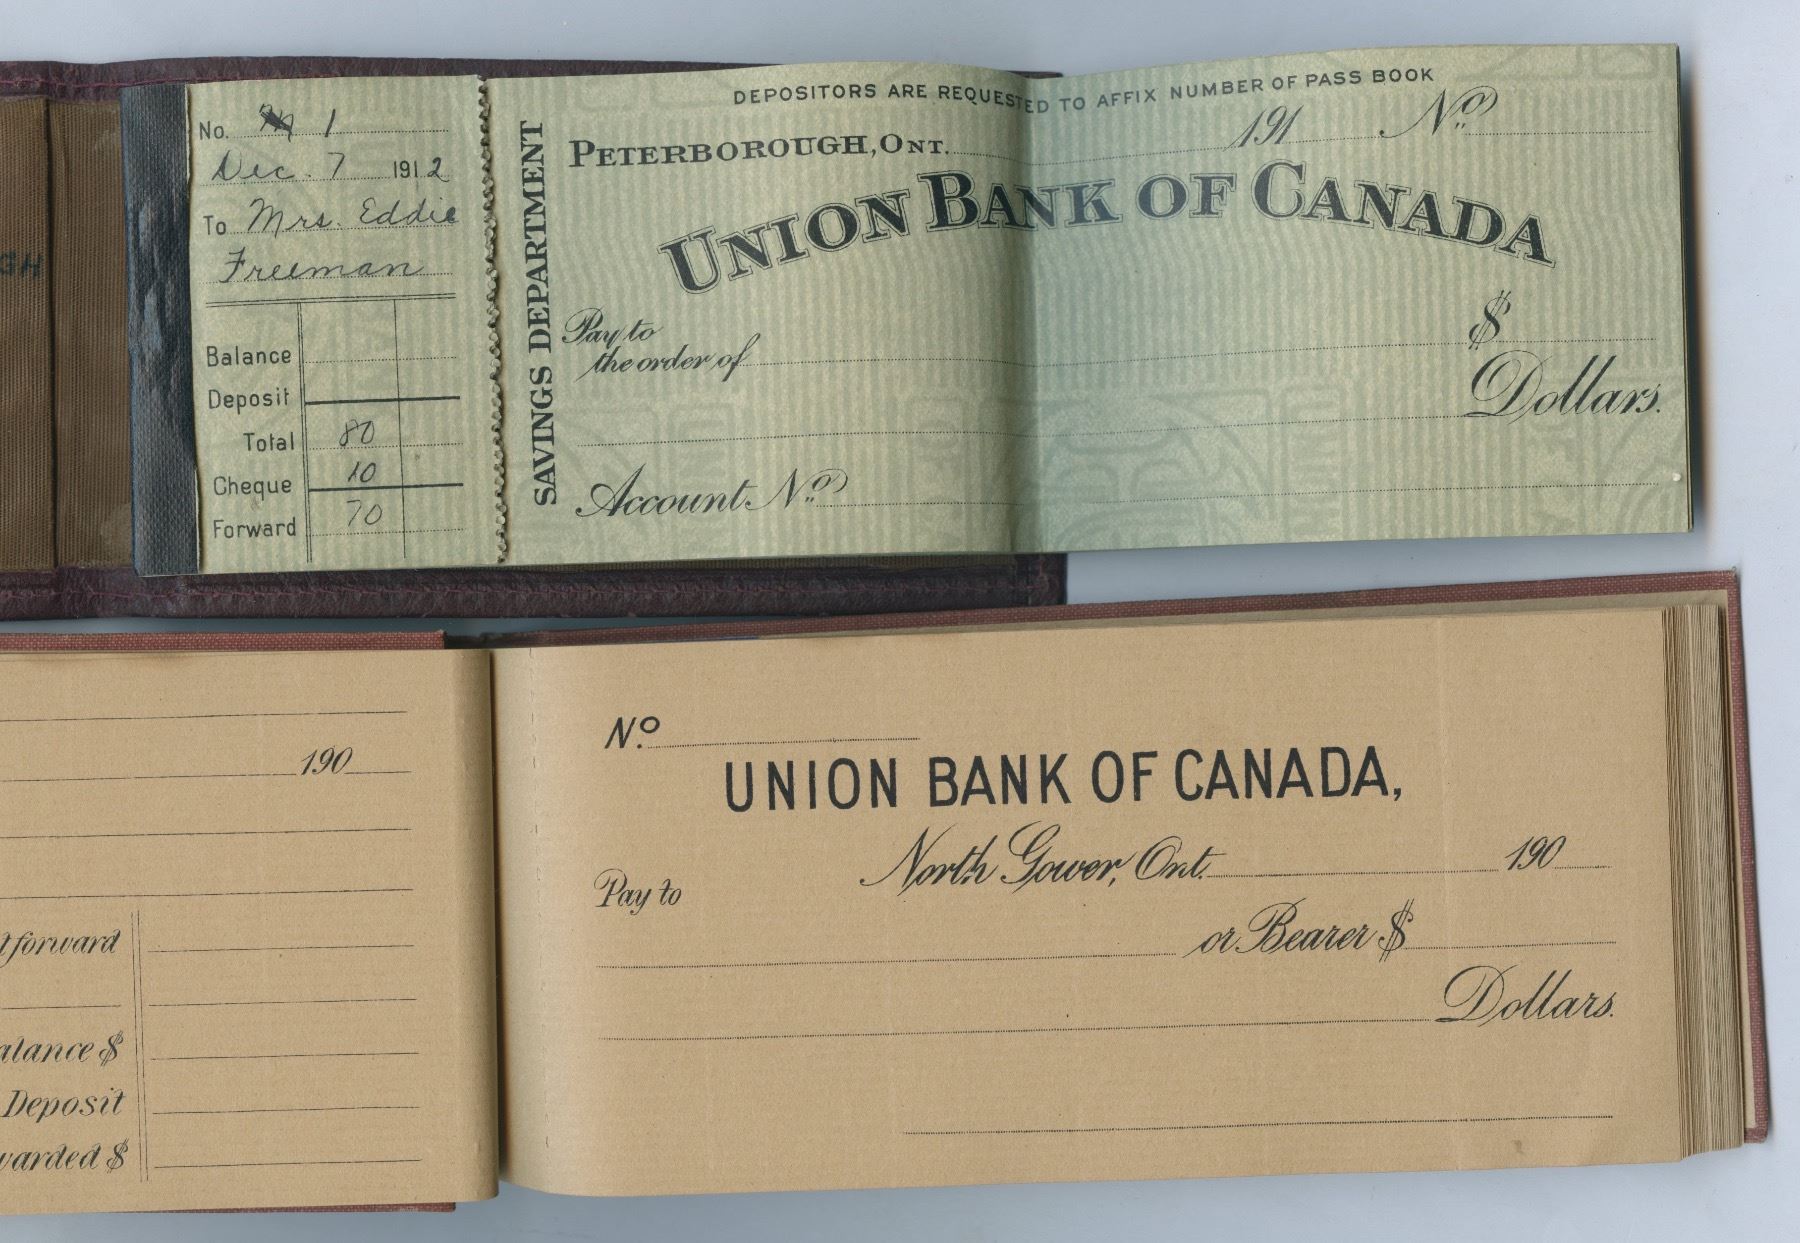 GH
No. 1
Dec. 7 1912
To Mrs. Eddie
Freeman
Balance
Deposit
Total 80
Cheque 10
Forward 70
SAVINGS DEPARTMENT
DEPOSITORS ARE REQUESTED TO AFFIX NUMBER OF PASS BOOK
PETERBOROUGH, ONT. 191 No.
UNION BANK OF CANADA
Pay to
the order of $
Dollars.
Account No.
190
t forward
alance $
Deposit
warded $
No.
UNION BANK OF CANADA,
North Gower, Ont. 190
Pay to
or Bearer $
Dollars.